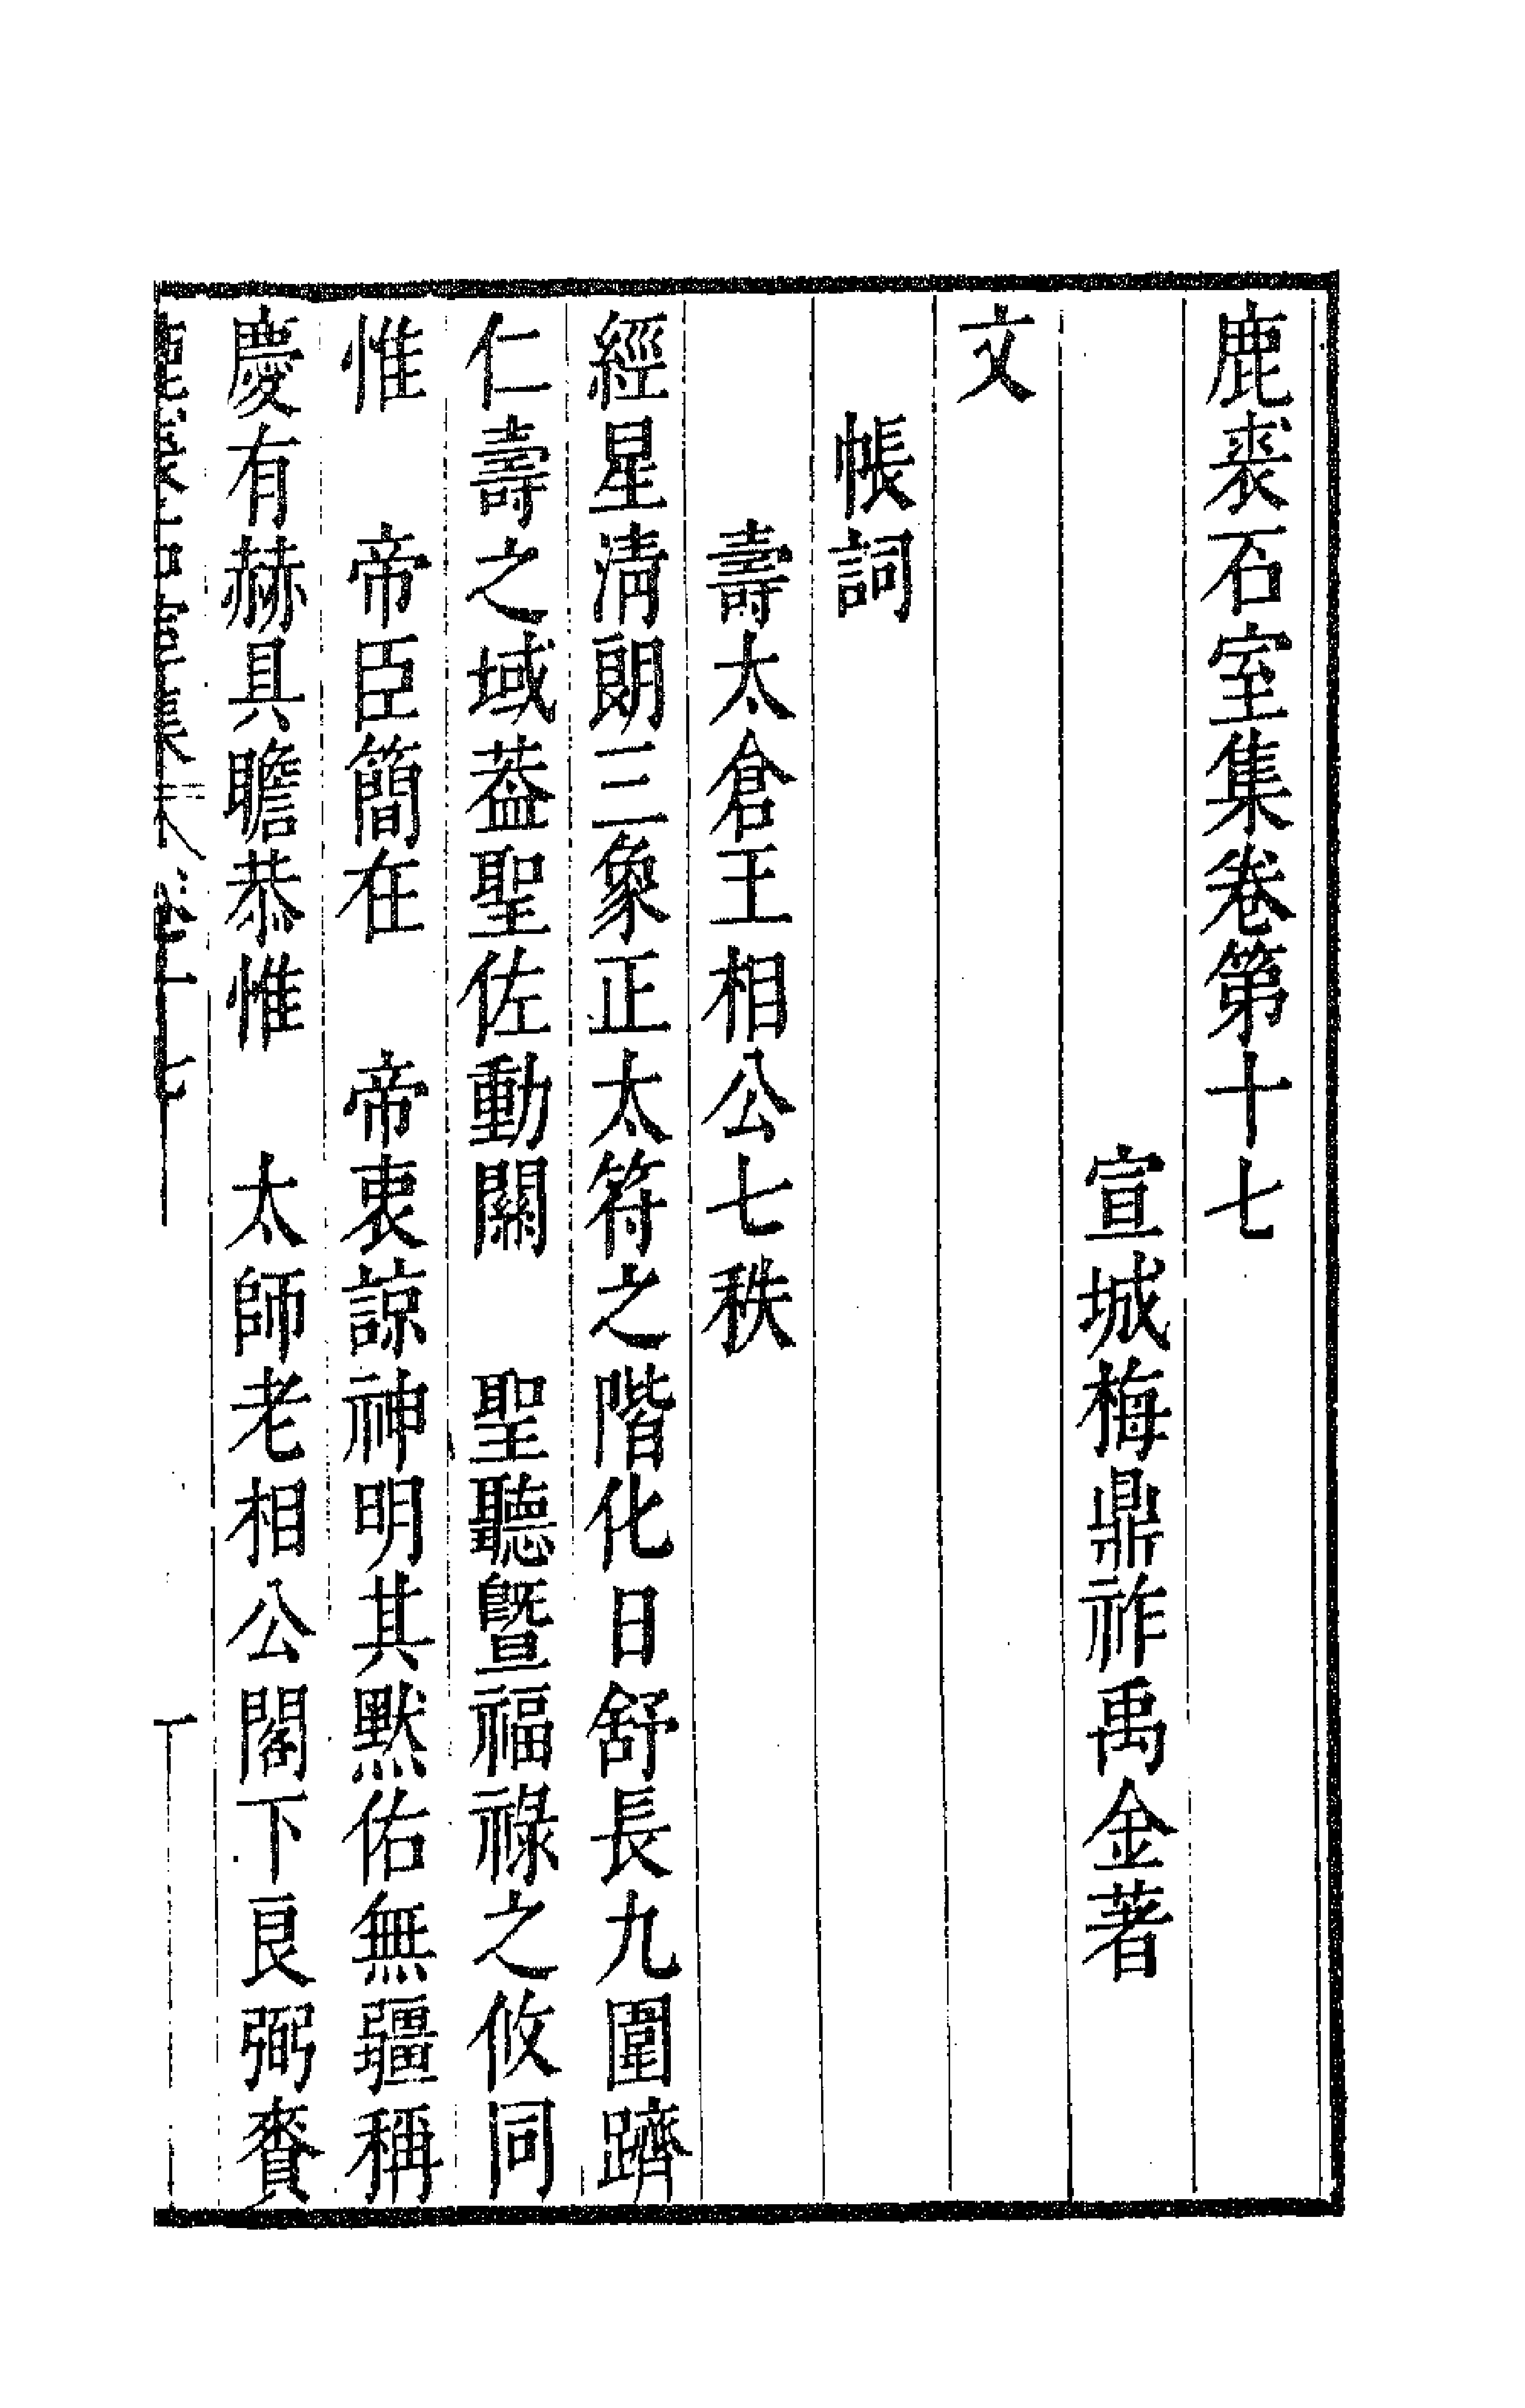 鹿裘石室集卷第十七
宣城梅鼎祚禹金著
文
帳詞
壽太倉王相公七秩
經星淸朗三象正太符之階化日舒長九圍躋
仁壽之域葢聖佐動關　聖聽曁福祿之攸同
惟　帝臣簡在　帝衷諒神明其默佑無疆稱
慶有赫具瞻恭惟　太師老相公閣下良弼賚
鹿裘石室集　卷十七